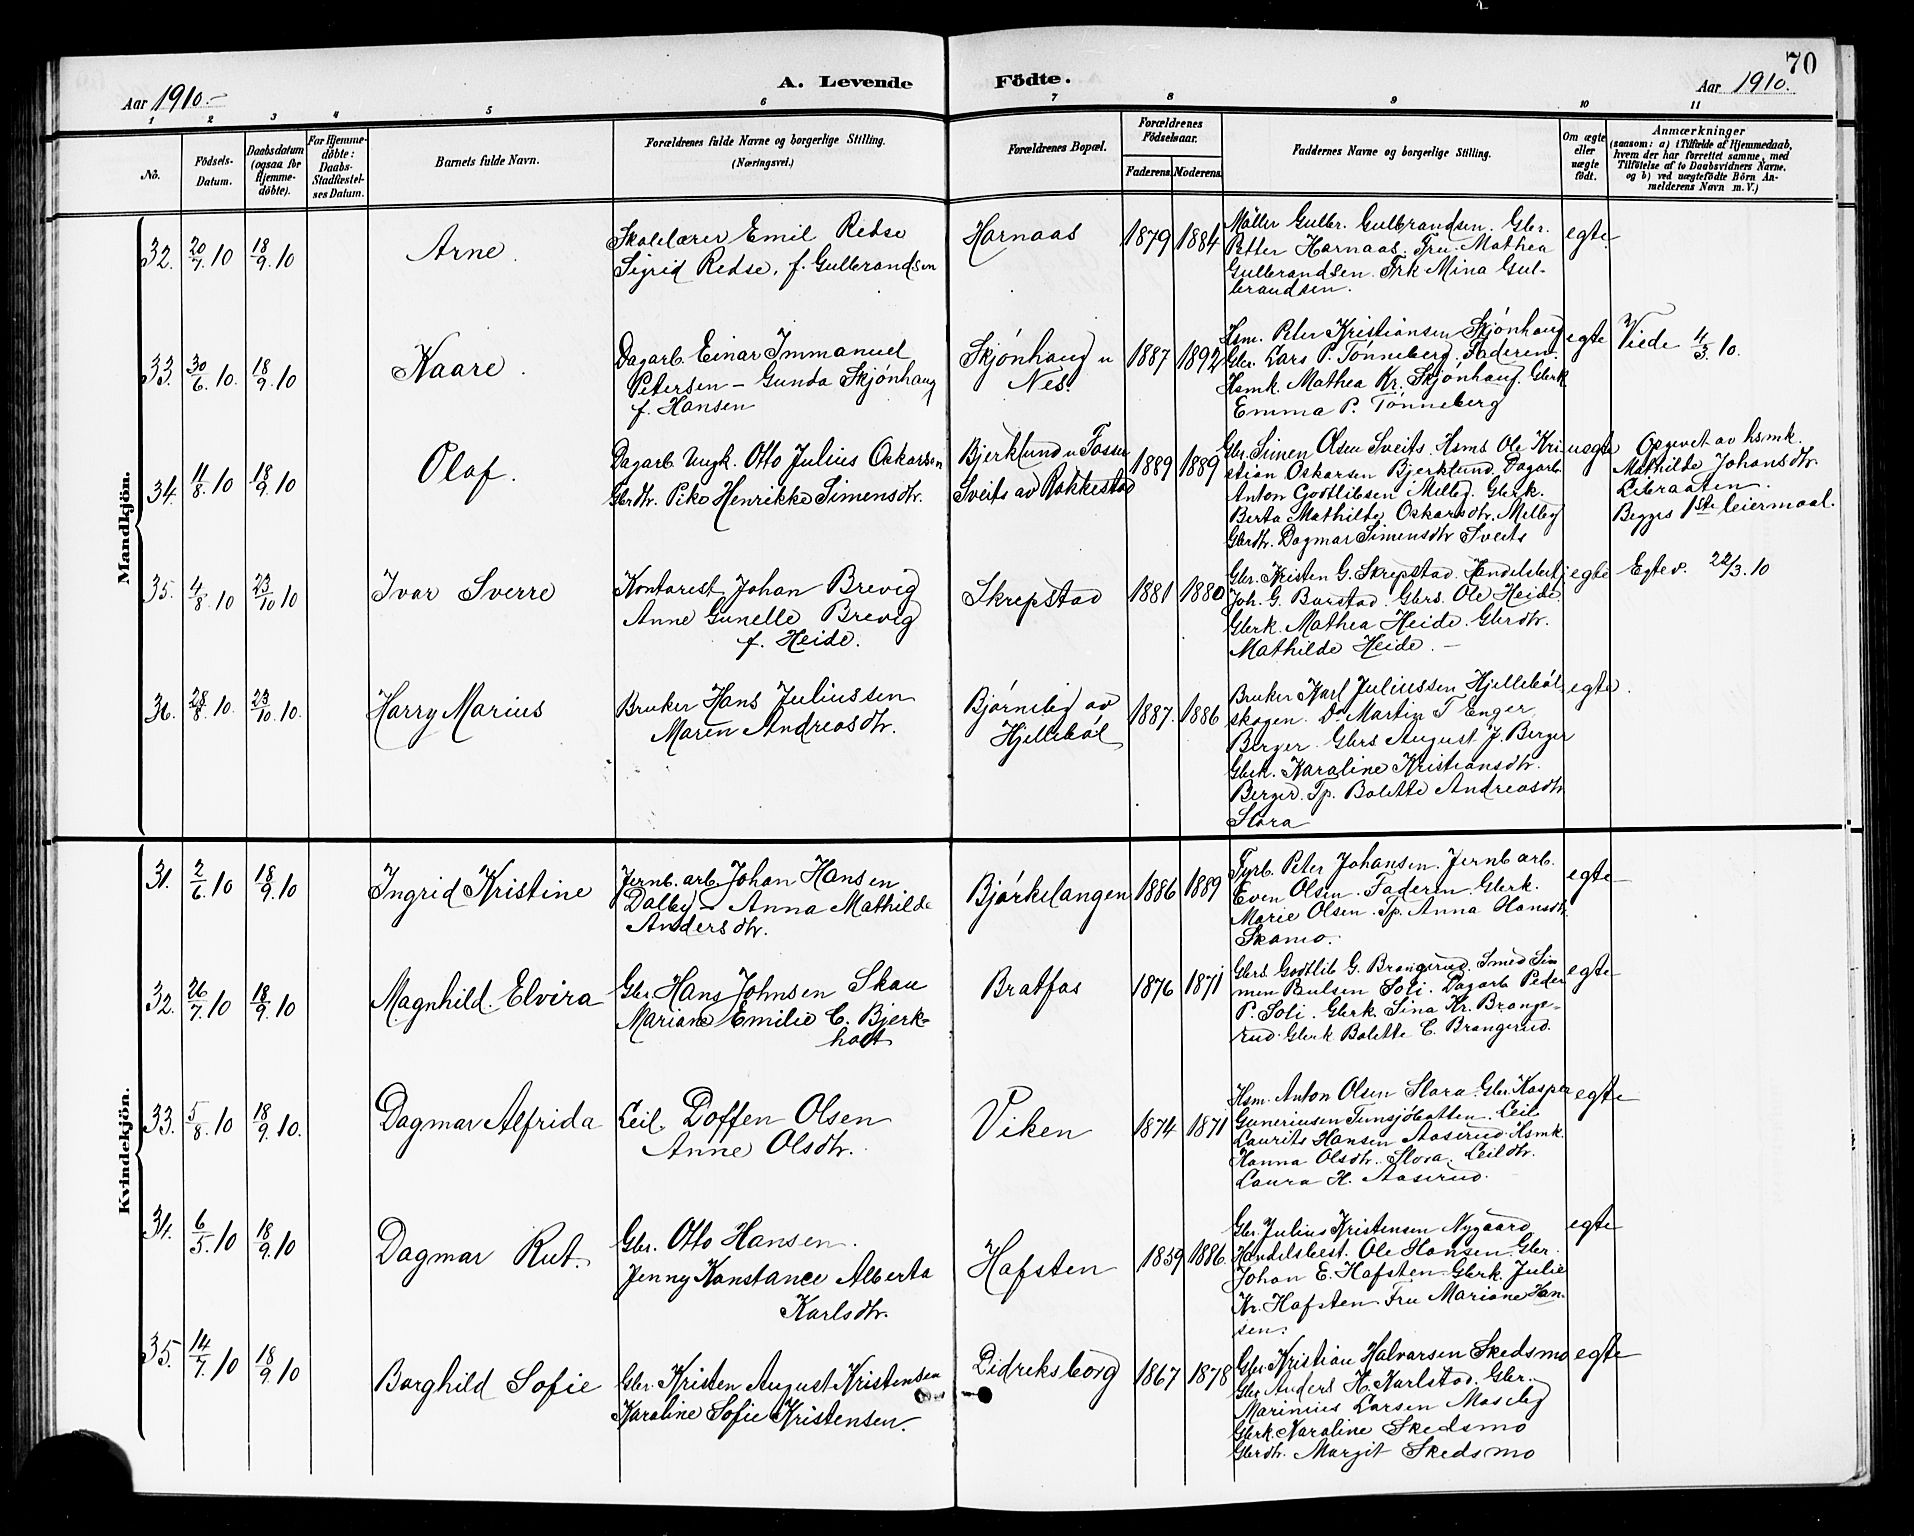 70
Aar 1910.–
A. Levende Födte.
Aar 1910.
1 2 3 4 5 6 7 8 9 10 11
No.
Födsels-Datum.
Daabsdatum (ogsaa for Hjemme-döbte).
For Hjemme-döbte: Daabs-Stadfæstel-ses Datum.
Barnets fulde Navn.
Forældrenes fulde Navne og borgerlige Stilling.
(Næringsvei.)
Forældrenes Bopæl.
Forældrenes Födselsaar.
Faderens. Moderens.
Faddernes Navne og borgerlige Stilling.
Om ægte eller uægte födt.
Anmærkninger
(saasom: a) i Tilfælde af Hjemmedaab, hvem der har forrettet samme, med Tilföielse af to Daabsvidners Navne, og b) ved uægtefödte Börn An-melderens Navn m. V.)
Mandkjön.
32. 20/7.10 18/9.10 Arne.
Skolelærer Emil Redse
Sigrid Redse, f. Gulbrandsen
Harnaas 1879 1884
Møller Gulbr. Gulbrandsen. Gbr.
Petter Harnaas. Fru Mathea
Gulbrandsen. Frk Mina Gul-
brandsen.
egte.
33. 30/6.10. 18/9.10 Kaare.
Dagarb. Einar Immanuel
Petersen – Gunda Skjønhaug
f. Hansen
Skjønhaug u
Nes.
1887 1892
Hsm. Peter Kristiansen Skjønhaug
Gbr. Lars P. Tønneberg. Faderen.
Hsmk. Mathea Kr. Skjønhaug. Gbrk
Emma P. Tønneberg
egte
Viede 4/3 10.
34. 11/8.10 18/9.10 Olaf.
Dagarb. Ungk. Otto Julius Oskarsen
Gbrdtr. Pike Henrikke Simensdtr.
Bjerklund u Fosser
Sveits av Rakkestad
1889 1889
Gbr. Simen Olsen Sveits. Hsms Ole Kri-
stian Oskarsen Bjerklund. Dagarb
Anton Godtlibsen Melleg. Gbrk.
Berta Mathilde Oskarsdtr. Melleg
Gbrdtr. Dagmar Simensdtr Sveits
uegte
Opgivet av hsmk.
Mathilde Johansdtr
Libraaten.
Begges 1ste leiermaal.
35. 4/8.10 23/10 10 Ivar Sverre
Kontorest Johan Brevig
Anne Gunelle Brevig
f. Heide.
Skrepstad 1881 1880
Gbr. Kristen G. Skrepstad. Handelsbest
Joh. G. Barstad. Gbrs. Ole Heide.
Gbrk. Mathea Heide. Gbrdtr.
Mathilde Heide. –
egte
Egtev. 22/3.10
36. 28/8.10. 23/10.10. Harry Marius
Bruker Hans Juliussen
Maren Andreasdtr.
Bjørnelid av
Hjellebøl
1887. 1886
Bruker Karl Juliussen Hjellebøl-
skogen. Do Martin T. Enger
Berger. Gbrs August J. Berger
Gbrk. Karoline Kristiansdtr.
Berger. Tp. Bolette Andreasdtr
Slora
egte.
Kvindekjön.
31. 2/6.10 18/9.10 Ingrid Kristine
Jernb. arb. Johan Hansen
Dalby – Anna Mathilde
Andersdtr.
Bjørkelangen 1886 1889
Fyrb. Peter Johansen. Jernb arb.
Even Olsen. Faderen. Gbrk.
Marie Olsen. Tp. Anna Hansdtr.
Skamo.
egte
32. 26/7.10 18/9.10 Magnhild Elvira
Gbr. Hans Johnsen Skau
Mariane Emilie C. Bjerk-
holt
Bratfos 1876 1871
Gbrs. Godtlib G. Brangerud. Smed Si-
men Paulsen Soli. Dagarb Peder
P. Soli. Gbrk. Sina Kr. Brange-
rud. Gbrk Bolette C. Brangerud.
egte
33. 5/8.10 18/9.10. Dagmar Alfrida
Leil. Doffen Olsen
Anne Olsdtr.
Viken 1874 1871
Hsm. Anton Olsen Slora. Gbr. Kasper
Laurits Hansen Aaserud. Hsmk.
Hanna Olsdtr. Slora. Leildtr.
Laura H. Aaserud.
egte
34. 6/5.10 18/9.10 Dagmar Rut.
Gbr. Otto Hansen.
Jenny Konstance Alberta
Karlsdtr.
Hafsten 1859 1886.
Gbr. Julius Kristensen Nygaard
Handelsbest. Ole Hansen. Gbr.
Johan E. Hafsten. Gbrk. Julie
Kr. Hafsten. Fru Mariane Han-
sen.
egte
35. 14/7.10 18/9.10 Borghild Sofie
Gbr. Kristen August Kristensen
Karoline Sofie Kristensen.
Didreksborg 1867 1878
Gbr. Kristian Halvorsen Skedsmo
Gbr Anders H. Karlstad. Gbr.
Marinius Larsen Moseby
Gbrk. Karoline Skedsmo
Gbrdtr. Margit Skedsmo
egte